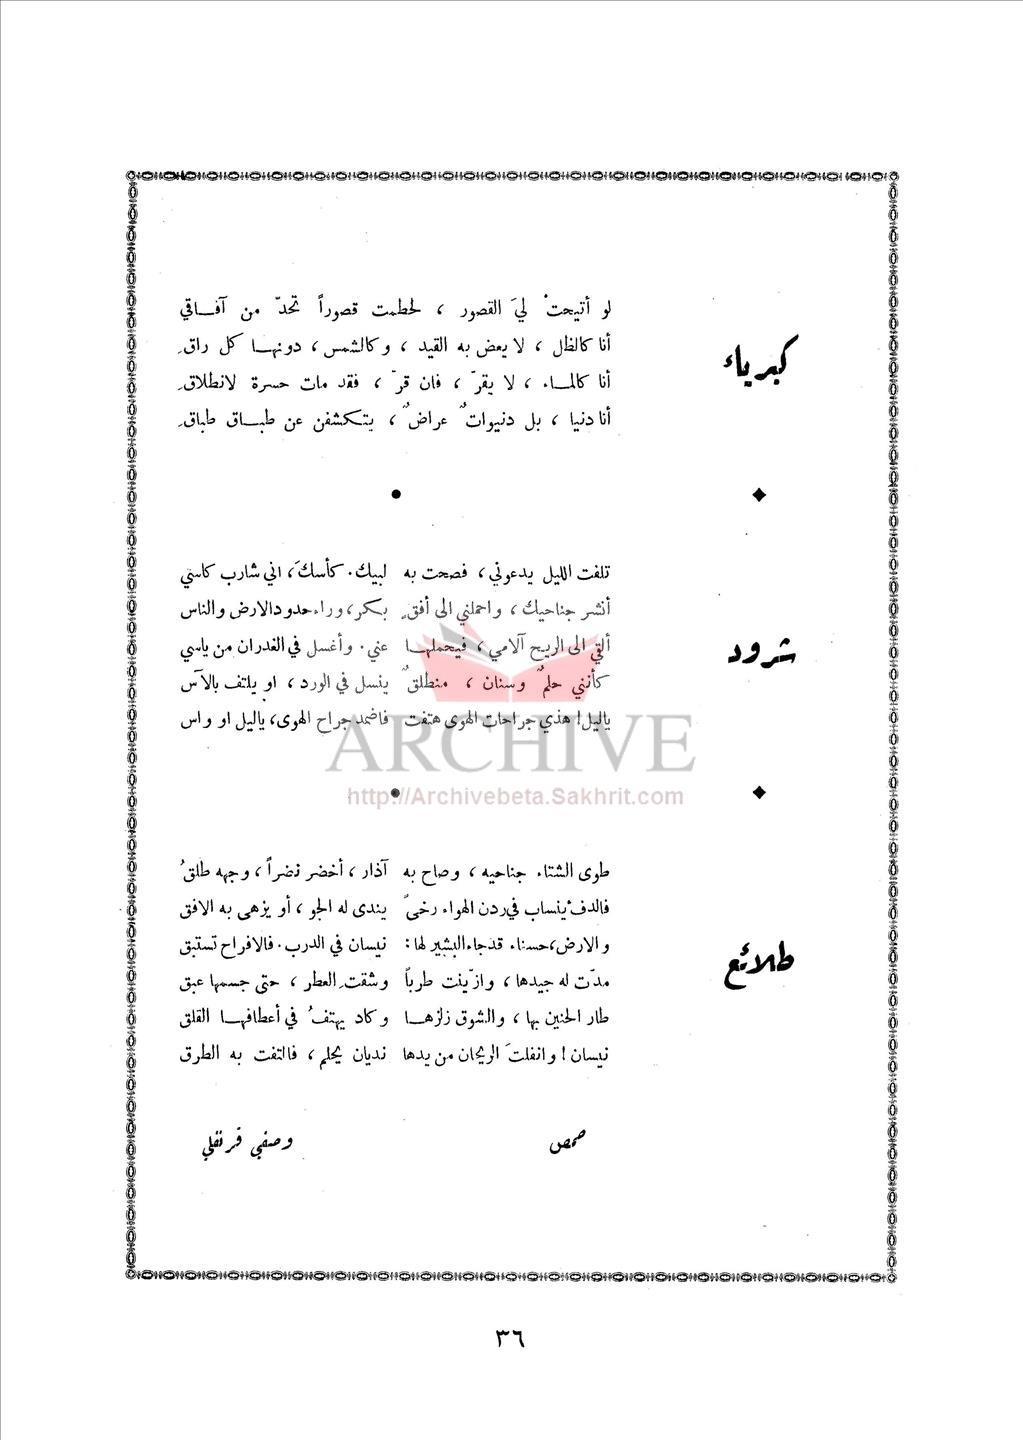 كبرياء
لو أتيحتْ ليَ القصور ، لحطمت قصوراً تحدّ من آفـاقي
أنا كالظل ، لا يعض به القيد ، وكالشمس ، دونهـا كل راقِ
أنا كالمـاء ، لا يقرّ ، فان قرّ ، فقد مات حسرة لانطلاقِ
أنا دنيا ، بل دنيواتٌ عراضٌ ، يتكشفن عن طبـاق طباقِ
شرود
تلفت الليل يدعوني ، فصحت به لبيك . كأسكَ ، اني شارب كاسي
أنشر جناحيك ، واحملني الى أفقٍ بكر ، وراء حدود الارض والناس
ألقي الى الريح آلامي ، فيحملهـا عني . وأغسل في الغدران من ياسي
كأنني حلمٌ وسنان ، منطلقٌ ينسل في الورد ، او يلتف بالآس
ياليل ! هذي جراحات الهوى هتفت فاضمد جراح الهوى ، ياليل او واس
ARCHIVE
http://Archivebeta.Sakhrit.com
طلائع
طوى الشتاء جناحيه ، وصاح به آذار ، أخضر نضراً ، وجهه طلقُ
فالدفء ينساب في ردن الهواء رخىً يندى له الجو ، أو يزهى به الافق
والارض ، حسناء قد جاء البشير لها : نيسان في الدرب . فالافراح تستبق
مدّت له جيدها ، وازّينت طرباً وشقت العطر ، حتى جسمها عبق
طار الحنين بها ، والشوق زلزهـا وكاد يهتفُ في أعطافهـا القلق
نيسان ! وانفلتَ الريحان من يدها نديان يحلم ، فالتفت به الطرق
حمص وصفي قرنفلي
٣٦